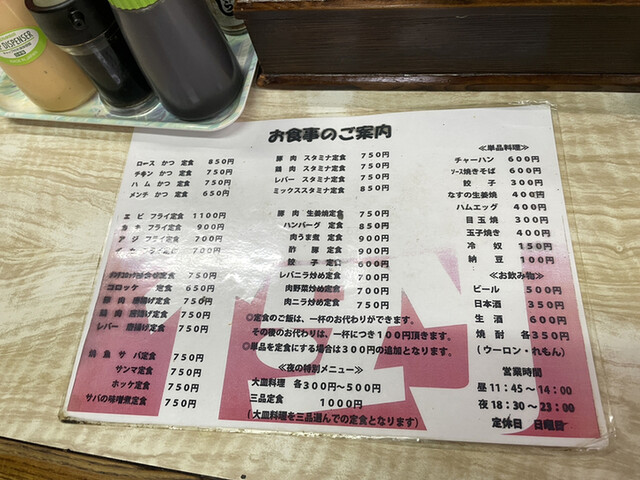 DISPENSER
お食事のご案内
ロース かつ 定食 850円
チキン かつ 定食 750円
ハム かつ 定食 750円
メンチ かつ 定食 650円
エビ フライ定食 1100円
フライ定食 900円
アジ フライ定食 700円
フライ定食 700円
定食 750円
コロッケ 定食 650円
豚肉 唐揚げ定食 750円
鶏肉 唐揚げ定食 750円
レバー 唐揚げ定食 750円
焼魚 サバ定食 750円
サンマ定食 750円
ホッケ定食 750円
サバの味噌煮定食 750円
豚肉 スタミナ定食 750円
鶏肉 スタミナ定食 750円
レバー スタミナ定食 750円
ミックススタミナ定食 850円
豚肉 生姜焼定食 750円
ハンバーグ 定食 850円
肉うま煮 定食 900円
酢豚 定食 900円
餃子 定食 600円
レバニラ炒め定食 700円
肉野菜炒め定食 700円
肉ニラ炒め定食 750円
◎定食のご飯は、一杯のお代わりができます。
その後のお代わりは、一杯につき100円頂きます。
◎単品を定食にする場合は300円の追加となります。
≪夜の特別メニュー≫
大皿料理 各300円〜500円
三品定食 1000円
(大皿料理を三品選んでの定食となります)
≪単品料理≫
チャーハン 600円
ソース焼きそば 600円
餃子 300円
なすの生姜焼 400円
ハムエッグ 400円
目玉焼 300円
玉子焼き 400円
冷奴 150円
納豆 100円
≪お飲み物≫
ビール 500円
日本酒 350円
生酒 600円
焼酎 各350円
(ウーロン・れもん)
営業時間
昼11:45〜14:00
夜18:30〜23:00
定休日 日曜日